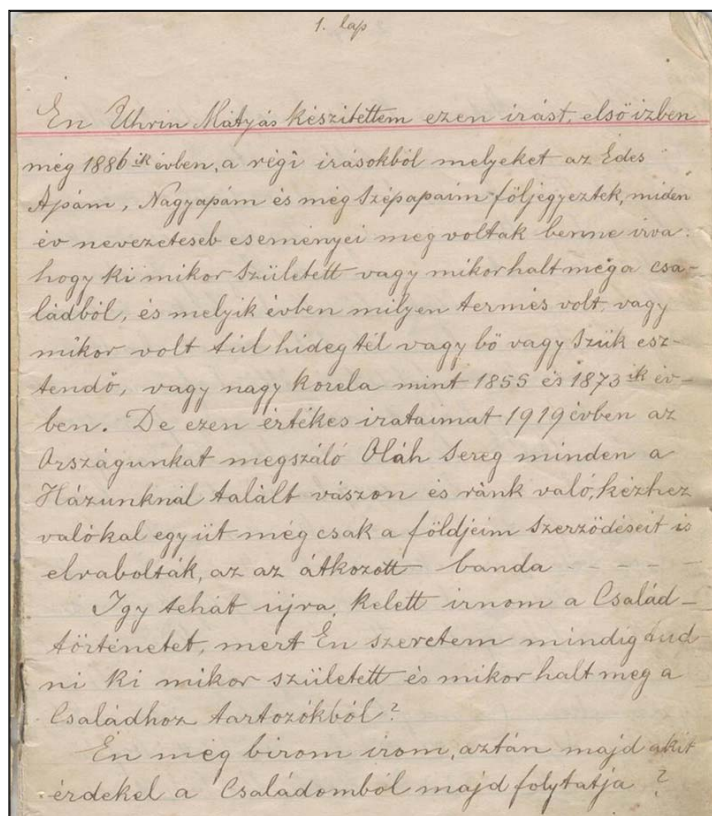 1. lap
Én Uhrin Mátyás készítettem ezen irást, első izben
még 1886 ik évben, a régi irásokból melyeket az Édes
Apám, Nagyapám és még Szépapáim följegyeztek, miden
év nevezeteseb eseményei meg voltak benne irva.
hogy ki mikor született vagy mikor halt meg a csa-
ládból, és melyik évben milyen termés volt, vagy
mikor volt túl hideg tél vagy bö vagy szük esz-
tendő, vagy nagy korela mint 1855 és 1873 ik év-
ben. De ezen értékes irataimat 1919 évben az
Országunkat megszáló Oláh sereg minden a
Házunknál talált vászon és ránk való, kézhez
valókal együt még csak a földjeim szerződéseit is
elrabolták, az az átkozott banda - - - - -
Igy tehát ujra, kelett irnom a Család-
történetet, mert Én szeretem mindig tud-
ni ki mikor született és mikor halt meg a
Családhoz tartozókból?
Én még birom irom, aztán majd akit
érdekel a Családomból majd folytatja?